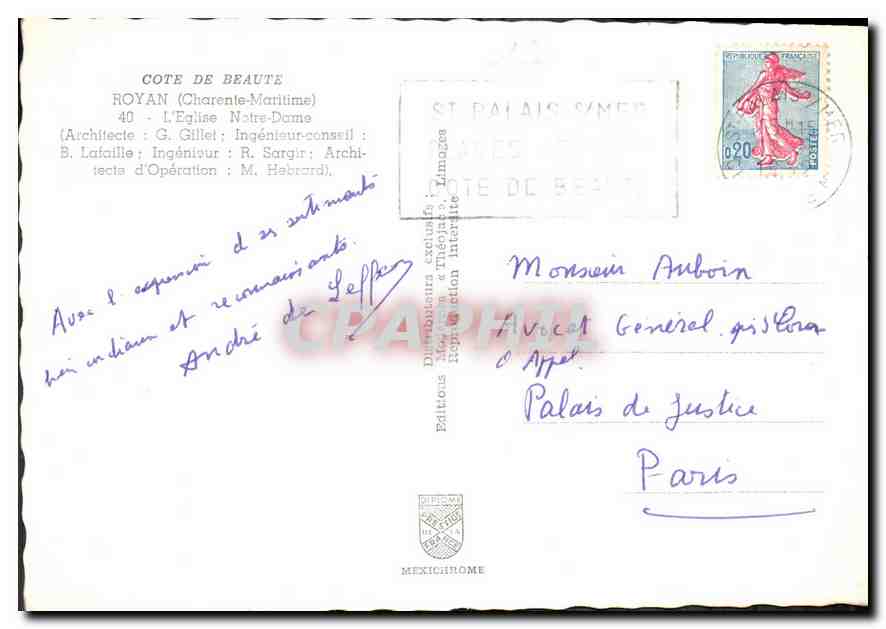 COTE DE BEAUTE
ROYAN (Charente-Maritime)
40 - L'Eglise Notre-Dame
(Architecte : G. Gillet; Ingénieur-conseil :
B. Lafaille; Ingénieur : R. Sargir; Archi-
tecte d'Opération : M. Hebrard).
Avec l'expression de ses sentiments
bien cordiaux et reconnaissants.
André de
Distributeurs exclusifs :
Editions Modernes « Théojac », Limoges
Reproduction interdite
ST PALAIS S/MER
PLAGES
COTE DE BEAUTE
REPUBLIQUE FRANÇAISE
0,20
POSTES
Monsieur Auboin
Avocat Général près la Cour
d'Appel.
Palais de Justice
Paris
CPAPHIL
DIPLOME
PRESTIGE
DE LA
FRANCE
MEXICHROME